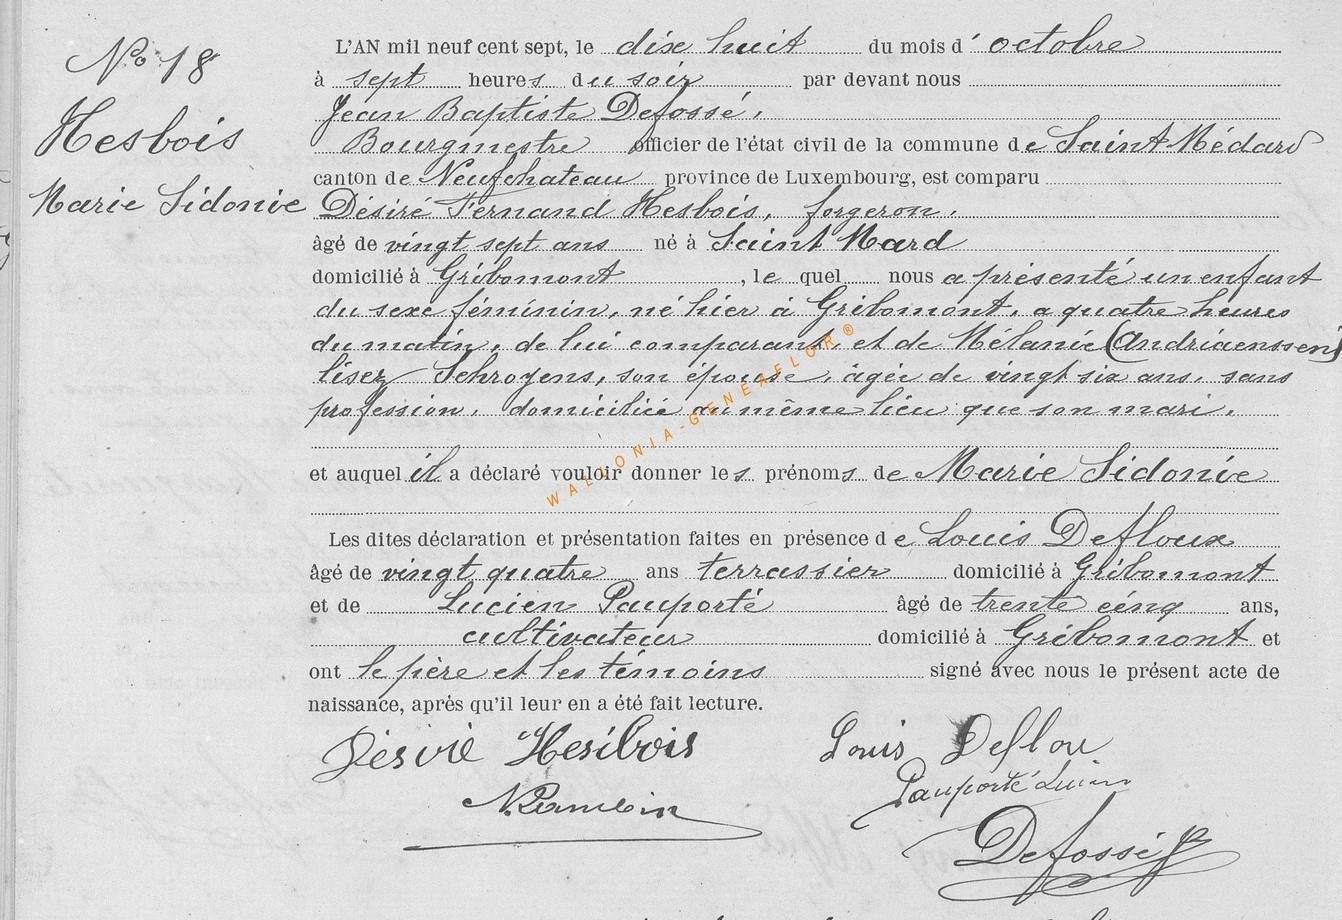 N° 18
Hesbois
Marie Sidonie
L'AN mil neuf cent sept, le dix huit du mois d'octobre
à sept heures du soir par devant nous
Jean Baptiste Defossé,
Bourgmestre officier de l'état civil de la commune de Saint Médard
canton de Neufchateau province de Luxembourg, est comparu
Désiré Fernand Hesbois, forgeron,
âgé de vingt sept ans né à Saint Mard
domicilié à Gribomont, le quel nous a présenté un enfant
du sexe féminin, né hier à Gribomont, a quatre heures
du matin, de lui comparant, et de Mélanie (Andriaenssens)
lisez Schroyens, son épouse, âgée de vingt six ans, sans
profession, domiciliée au même lieu que son mari.
et auquel il a déclaré vouloir donner les prénoms de Marie Sidonie
Les dites déclaration et présentation faites en présence de Louis Defloux
âgé de vingt quatre ans terrassier domicilié à Gribomont
et de Lucien Pauporté âgé de trente cinq ans,
cultivateur domicilié à Gribomont et
ont le père et les témoins signé avec nous le présent acte de
naissance, après qu'il leur en a été fait lecture.
Désiré Hesibois
Louis Deflou
Pauporté Lucien
Defossé
WALLONIA-GENEAFLOR®